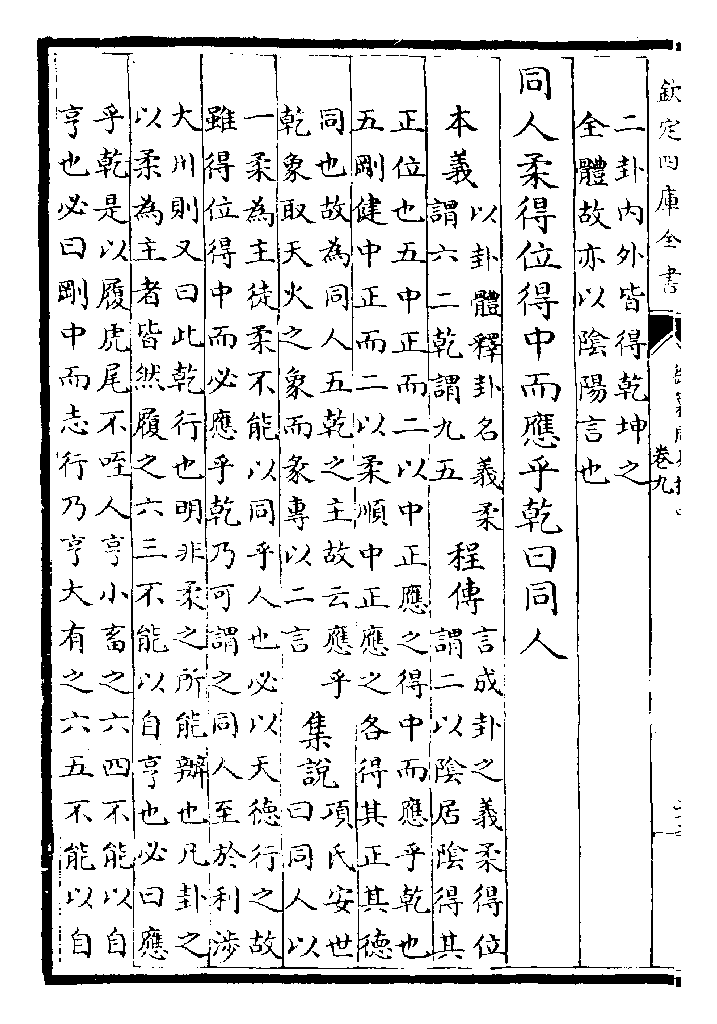 欽定四庫全書
卷九
二卦内外皆得乾坤之
全體故亦以陰陽言也
同人柔得位得中而應乎乾曰同人
本義
以卦體釋卦名義柔
謂六二乾謂九五
程傳
言成卦之義柔得位
謂二以陰居陰得其
正位也五中正而二以中正應之得中而應乎乾也
五剛健中正而二以柔順中正應之各得其正其德
同也故為同人五乾之主故云應乎
乾象取天火之象而彖專以二言
集說
項氏安世
曰同人以
一柔為主徒柔不能以同乎人也必以天德行之故
雖得位得中而必應乎乾乃可謂之同人至於利涉
大川則又曰此乾行也明非柔之所能辦也凡卦之
以柔為主者皆然履之六三不能以自亨也必曰應
乎乾是以履虎尾不咥人亨小畜之六四不能以自
亨也必曰剛中而志行乃亨大有之六五不能以自